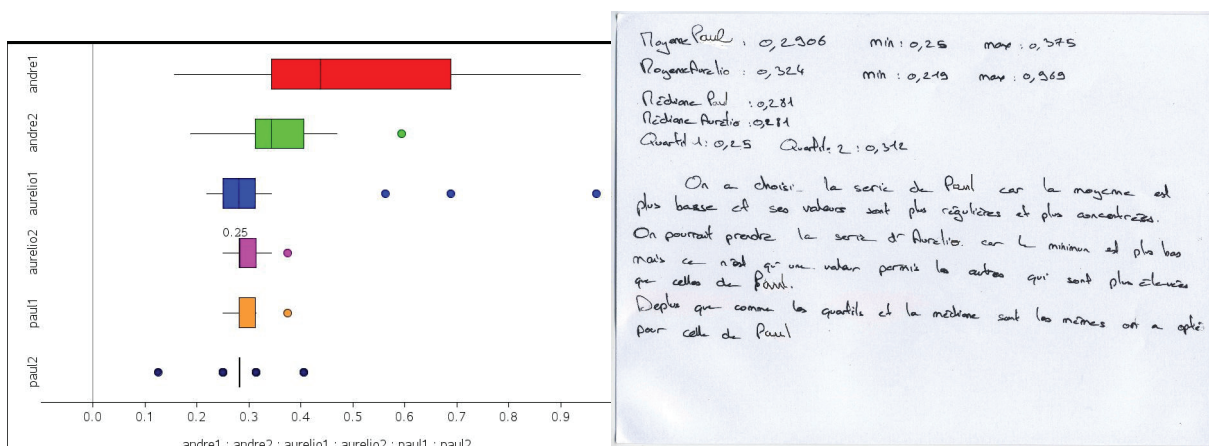 andre1
andre2
aurelio1
aurelio2
paul1
paul2
0.25
0.0 0.1 0.2 0.3 0.4 0.5 0.6 0.7 0.8 0.9
andre1 ; andre2 ; aurelio1 ; aurelio2 ; paul1 ; paul2
Moyenne Paul : 0,2906 min : 0,25 max : 0,375
Moyenne Aurelio : 0,324 min : 0,219 max : 0,969
Médiane Paul : 0,281
Médiane Aurelio : 0,281
Quartil 1 : 0,25 Quartile 2 : 0,312
On a choisi la serie de Paul car la moyenne est
plus basse et ses valeurs sont plus régulières et plus concentrées.
On pourrait prendre la serie d'Aurelio car le minimun est plus bas
mais ce n'est qu'une valeur permis les autres qui sont plus élevées
que celles de Paul.
Deplus que comme les quartils et la médiane sont les mêmes on a opté
pour celle de Paul